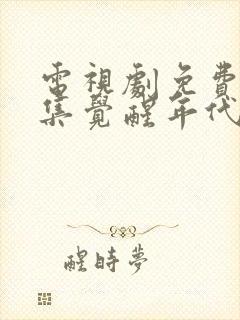 電視劇免費
集覺醒年代
醒時夢